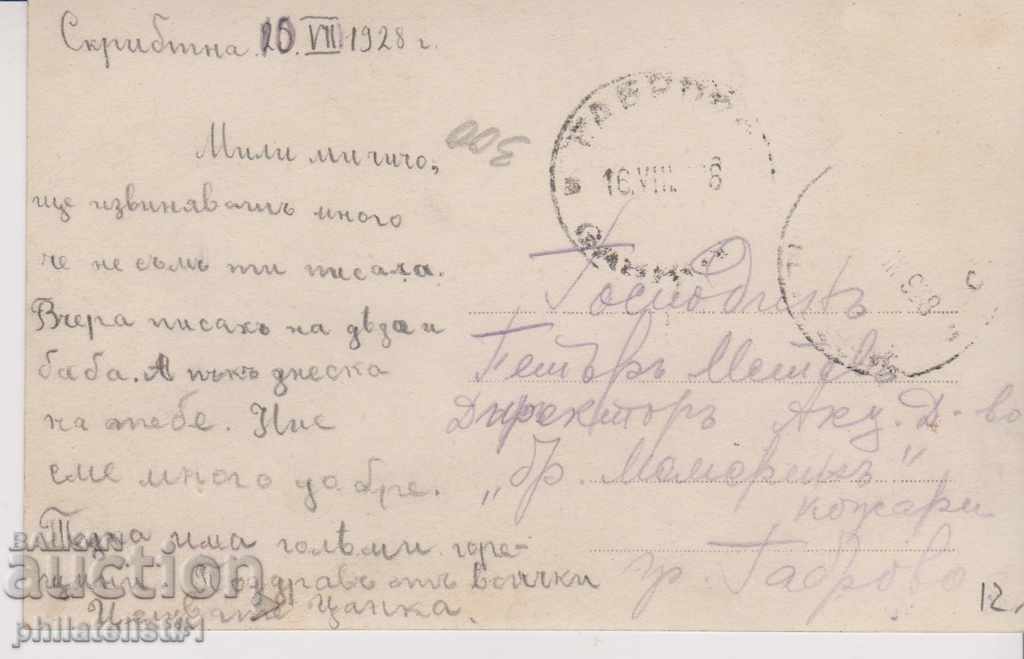 Скрибтна 10.VIII 1928 г.
Мили мичичо,
ще извинявашъ много
че не съмъ ти писала.
Вчера писахъ на дядо и
баба. А пъкъ днеска
на тебе. Ние
сме много добре.
има големи горе-
щини. Поздравъ отъ всички
Цанка.
300
ГАБРОВО
16.VIII. 8
Господинъ
Петъръ
Директоръ Акц. Д-во
„Бр. "
кожари
гр. Габрово
12.
BALKAN
auction
philatelist-1